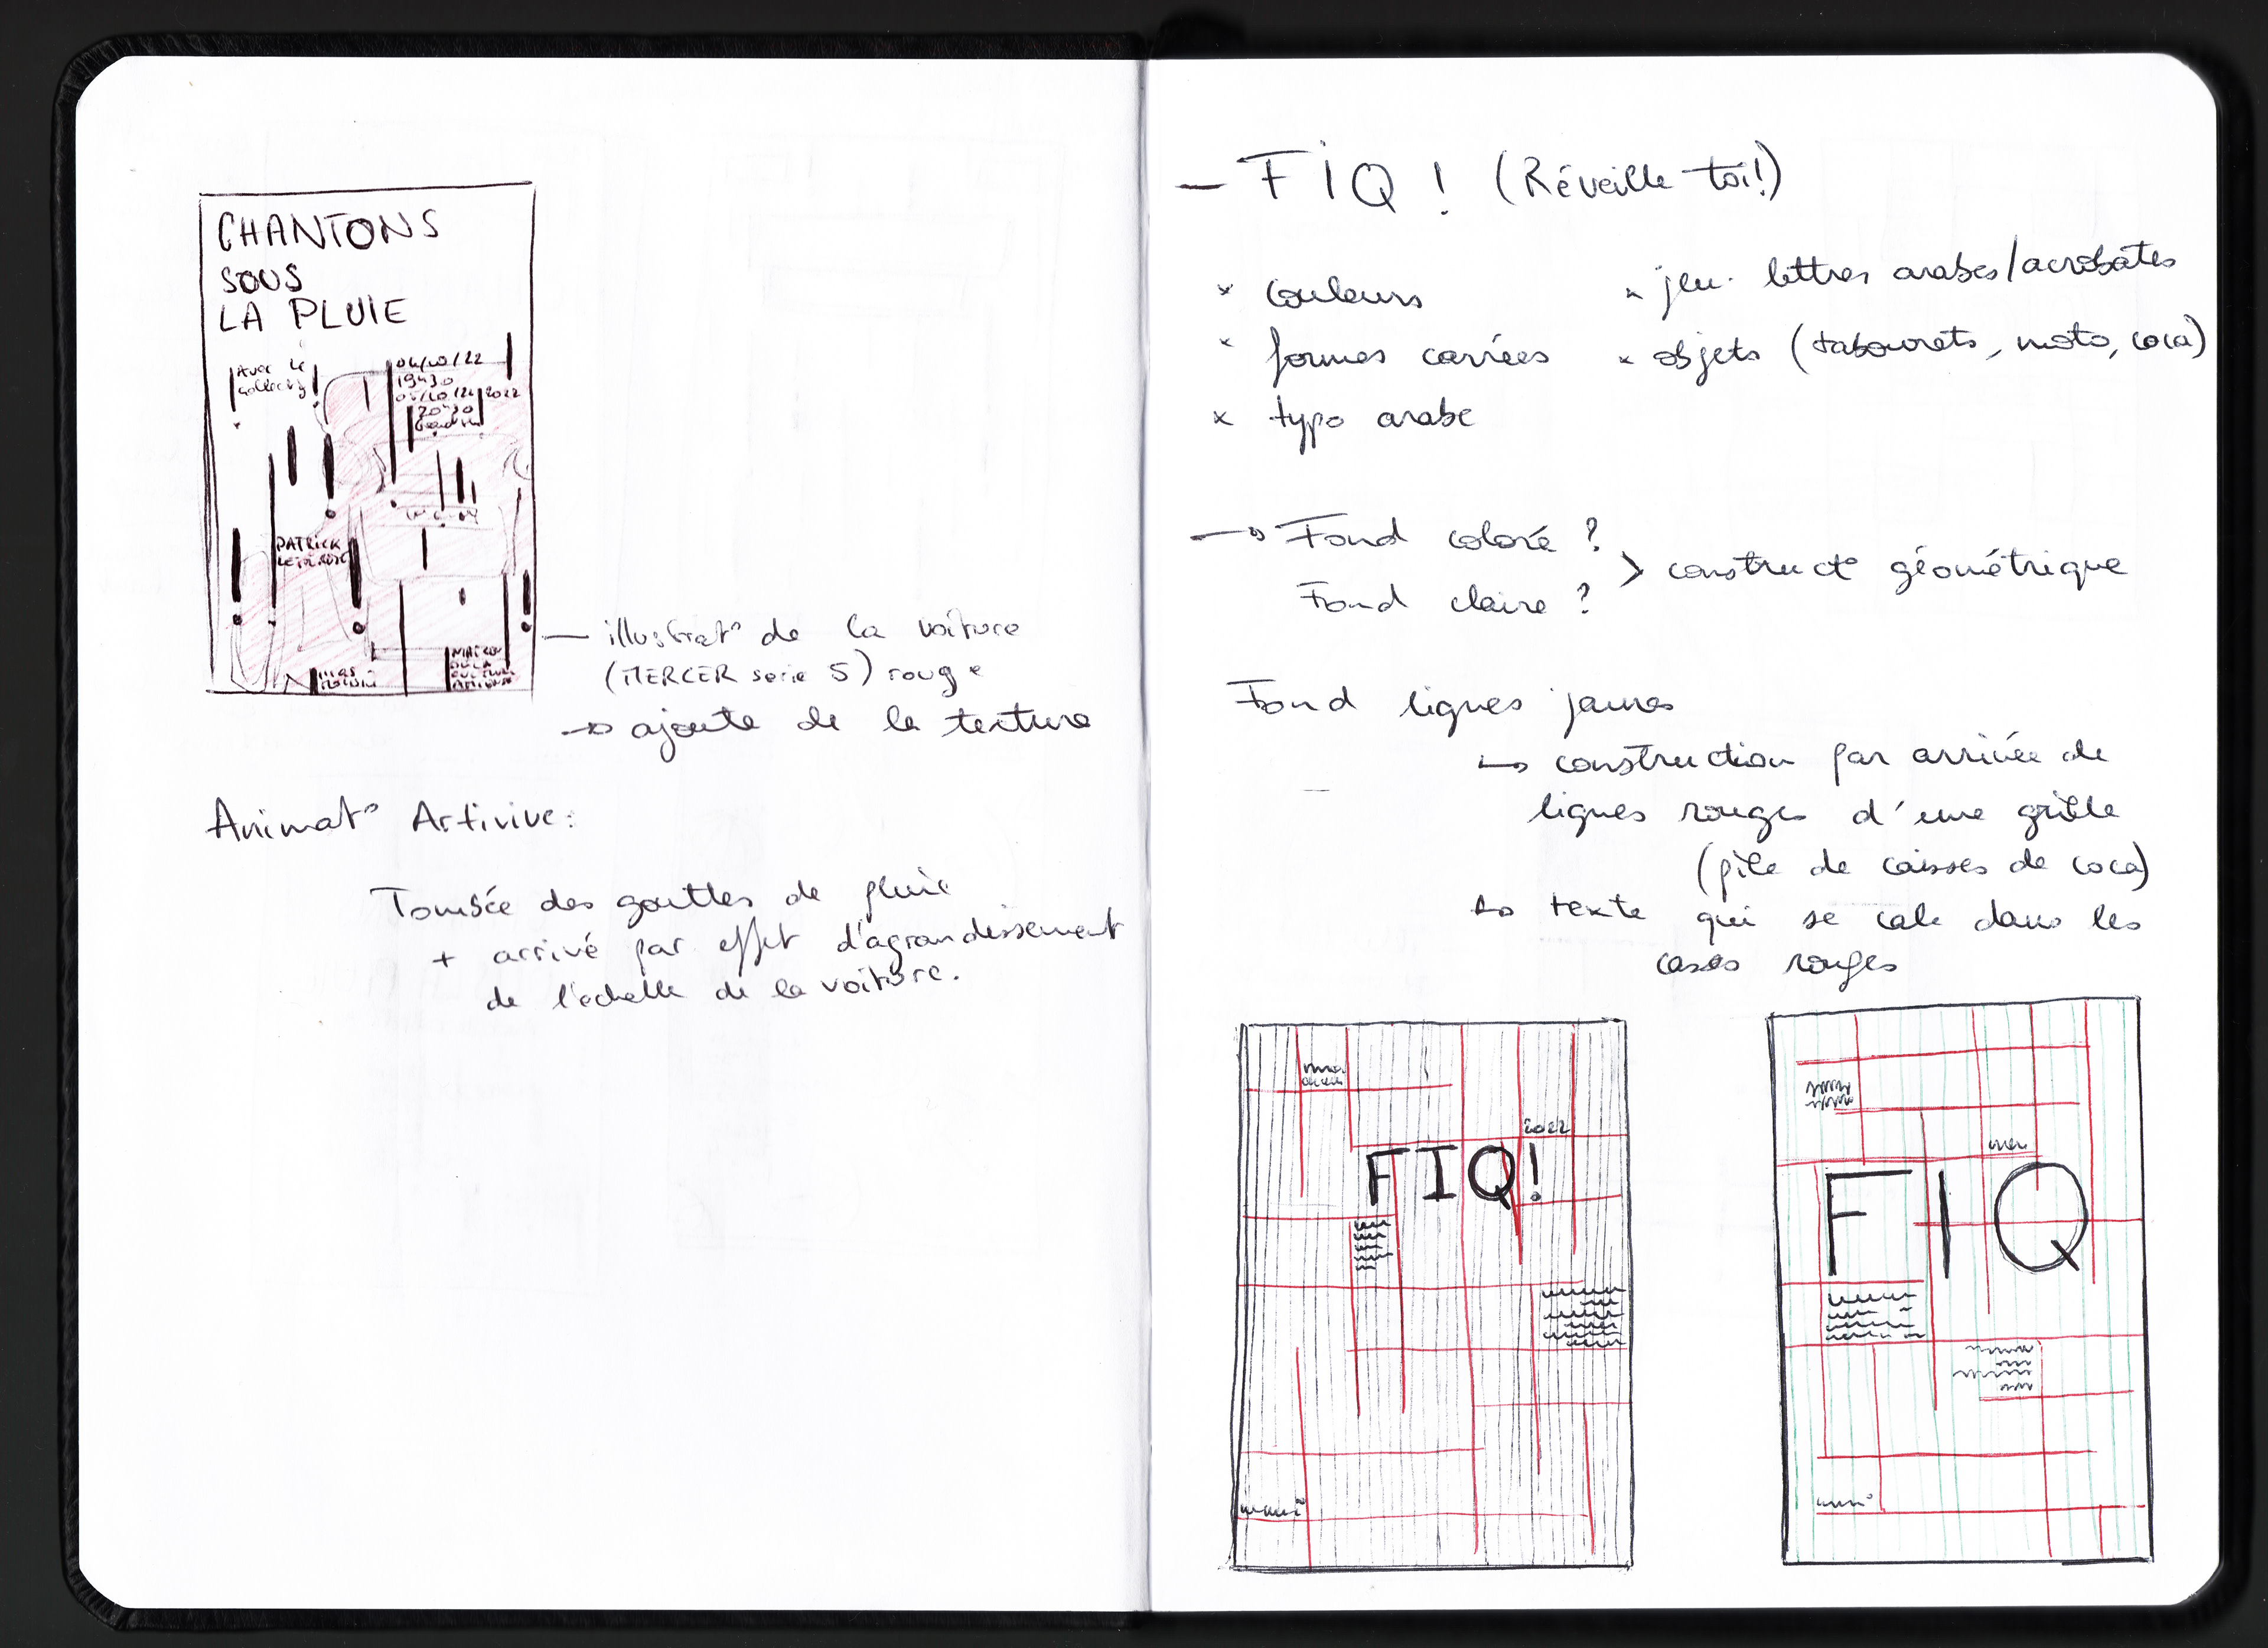 CHANTONS
SOUS
LA PLUIE
Avec le
collectif
04/10/22
19H30
05/10/22
2022
20H30
PATRICK
MAISON
DE LA
CULTURE
AMIENS
illustrat° de la voiture
(MERCER serie 5) rouge
→ ajoute de la texture
Animat° Artivive:
Tombée des gouttes de pluie
+ arrivé par effet d'agrandissement
de l'échelle de la voiture.
— FIQ ! (Réveille-toi!)
× couleurs
× formes carrées
× typo arabe
× jeu lettres arabes/acrobates
× objets (tabourets, moto, coca)
→ Fond coloré ?
Fond claire ?
> construct° géométrique
Fond lignes jaunes
↳ construction par arrivée de
lignes rouges d'une grille
(pile de caisses de coca)
↳ texte qui se cale dans les
cases rouges
2022
FIQ!
FIQ